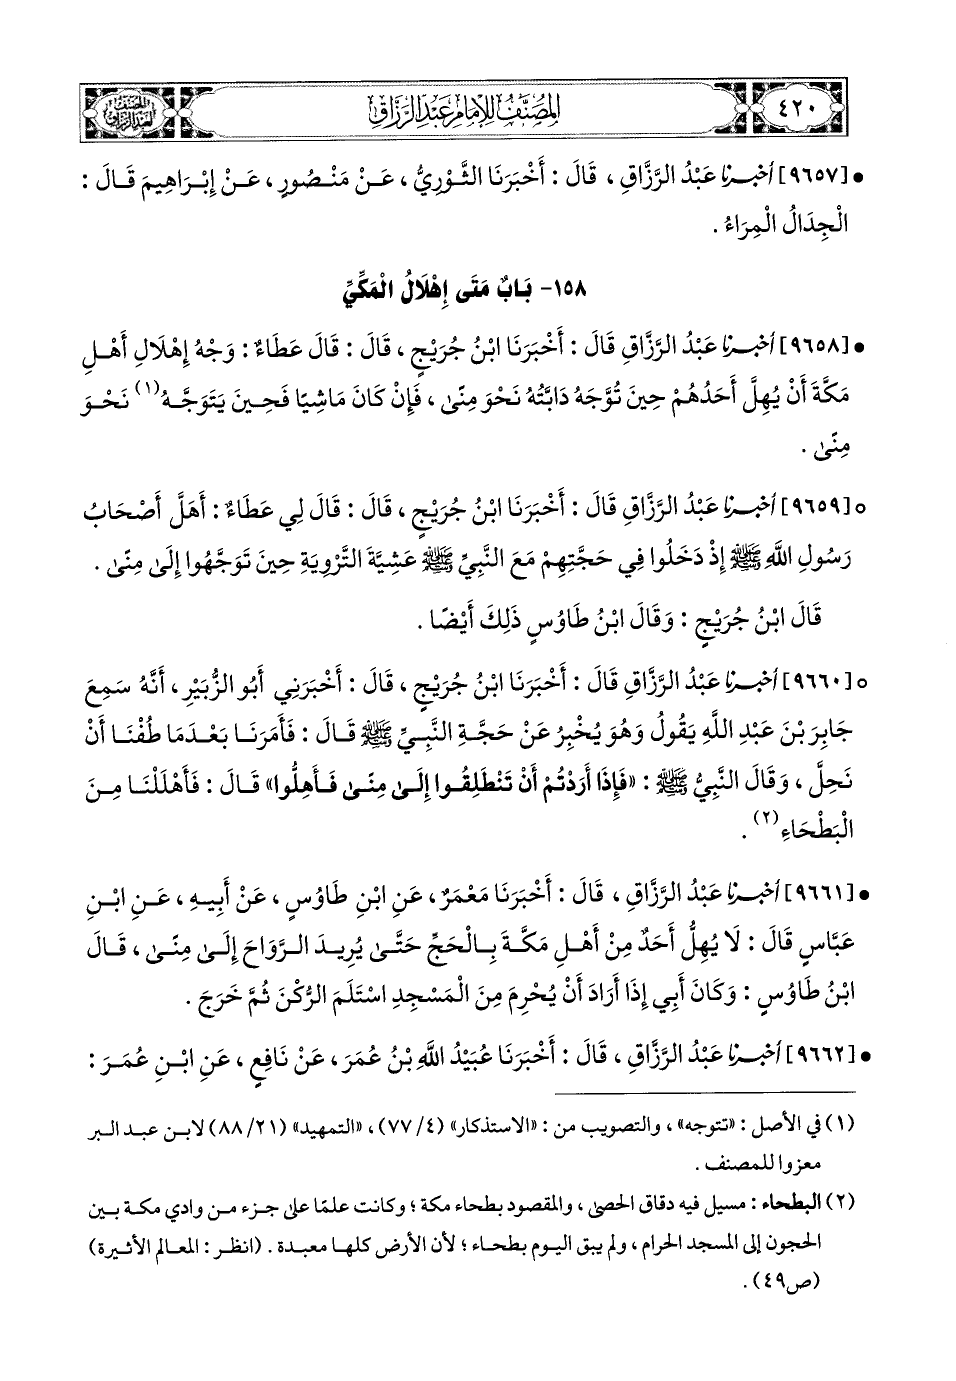 ٤٢٠
المصنف للإمام عبد الرزاق
• [٩٦٥٧] أخبرنا عَبْدُ الرَّزَّاقِ ، قَالَ : أَخْبَرَنَا الثَّوْرِيُّ ، عَنْ مَنْصُورٍ ، عَنْ إِبْرَاهِيمَ قَالَ :
الْجِدَالُ الْمِرَاءُ .
١٥٨- بَابٌ مَتَى إِهْلَالُ الْمَكِّيِّ
• [٩٦٥٨] أخبرنا عَبْدُ الرَّزَّاقِ قَالَ : أَخْبَرَنَا ابْنُ جُرَيْجٍ ، قَالَ : قَالَ عَطَاءٌ : وَجْهُ إِهْلَالِ أَهْلِ
مَكَّةَ أَنْ يُهِلَّ أَحَدُهُمْ حِينَ تُوَّجَهُ دَابَّتُهُ نَحْوَ مِنًى ، فَإِنْ كَانَ مَاشِيًا فَحِينَ يَتَوَجَّهُ(١) نَحْوَ
مِنًى .
○ [٩٦٥٩] أخبرنا عَبْدُ الرَّزَّاقِ قَالَ : أَخْبَرَنَا ابْنُ جُرَيْجٍ ، قَالَ : قَالَ لِي عَطَاءٌ : أَهَلَّ أَصْحَابُ
رَسُولِ اللَّهِ ﷺ إِذْ دَخَلُوا فِي حَجَّتِهِمْ مَعَ النَّبِيِّ ﷺ عَشِيَّةَ التَّرْوِيَةِ حِينَ تَوَجَّهُوا إِلَى مِنًى .
قَالَ ابْنُ جُرَيْجٍ : وَقَالَ ابْنُ طَاوُسٍ ذَلِكَ أَيْضًا .
○ [٩٦٦٠] أخبرنا عَبْدُ الرَّزَّاقِ قَالَ : أَخْبَرَنَا ابْنُ جُرَيْجٍ ، قَالَ : أَخْبَرَنِي أَبُو الزُّبَيْرِ ، أَنَّهُ سَمِعَ
جَابِرَ بْنَ عَبْدِ اللَّهِ يَقُولُ وَهُوَ يُخْبِرُ عَنْ حَجَّةِ النَّبِيِّ ﷺ قَالَ : فَأَمَرَنَا بَعْدَمَا طُفْنَا أَنْ
نَحِلَّ ، وَقَالَ النَّبِيُّ ﷺ : «فَإِذَا أَرَدْتُمْ أَنْ تَنْطَلِقُوا إِلَى مِنًى فَأَهِلُّوا» قَالَ : فَأَهْلَلْنَا مِنَ
الْبَطْحَاءِ(٢) .
• [٩٦٦١] أخبرنا عَبْدُ الرَّزَّاقِ ، قَالَ : أَخْبَرَنَا مَعْمَرٌ ، عَنِ ابْنِ طَاوُسٍ ، عَنْ أَبِيهِ ، عَنِ ابْنِ
عَبَّاسٍ قَالَ : لَا يُهِلُّ أَحَدٌ مِنْ أَهْلِ مَكَّةَ بِالْحَجِّ حَتَّى يُرِيدَ الرَّوَاحَ إِلَى مِنًى ، قَالَ
ابْنُ طَاوُسٍ : وَكَانَ أَبِي إِذَا أَرَادَ أَنْ يُحْرِمَ مِنَ الْمَسْجِدِ اسْتَلَمَ الرُّكْنَ ثُمَّ خَرَجَ .
• [٩٦٦٢] أخبرنا عَبْدُ الرَّزَّاقِ ، قَالَ : أَخْبَرَنَا عُبَيْدُ اللَّهِ بْنُ عُمَرَ ، عَنْ نَافِعٍ ، عَنِ ابْنِ عُمَرَ :
(١) في الأصل : «تتوجه» ، والتصويب من : «الاستذكار» (٤/ ٧٧) ، «التمهيد» (٢١/ ٨٨) لابن عبد البر
معزوا للمصنف .
(٢) البطحاء : مسيل فيه دقاق الحصى ، والمقصود بطحاء مكة ؛ وكانت علمًا على جزء من وادي مكة بين
الحجون إلى المسجد الحرام ، ولم يبق اليوم بطحاء ؛ لأن الأرض كلها معبدة . (انظر : المعالم الأثيرة)
(ص٤٩) .